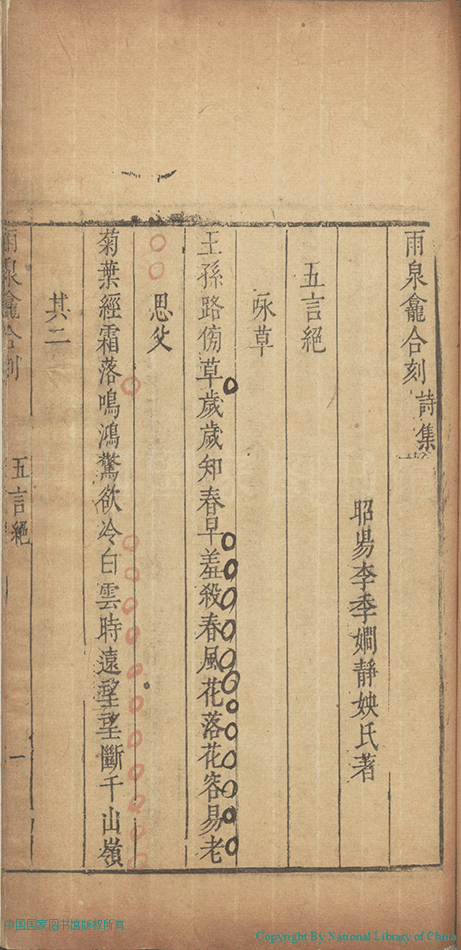 雨泉龕合刻 詩集
昭昜李季嫻靜姎氏著
五言絕
咏草
王孫路傍草歲歲知春早羞殺春風花落花容易老
思父
菊葉經霜落鳴鴻驚欲冷白雲時遠望望斷千山嶺
其二
雨泉龕合刻 五言絕 一
中国国家图书馆版权所有
Copyright By National Library of China